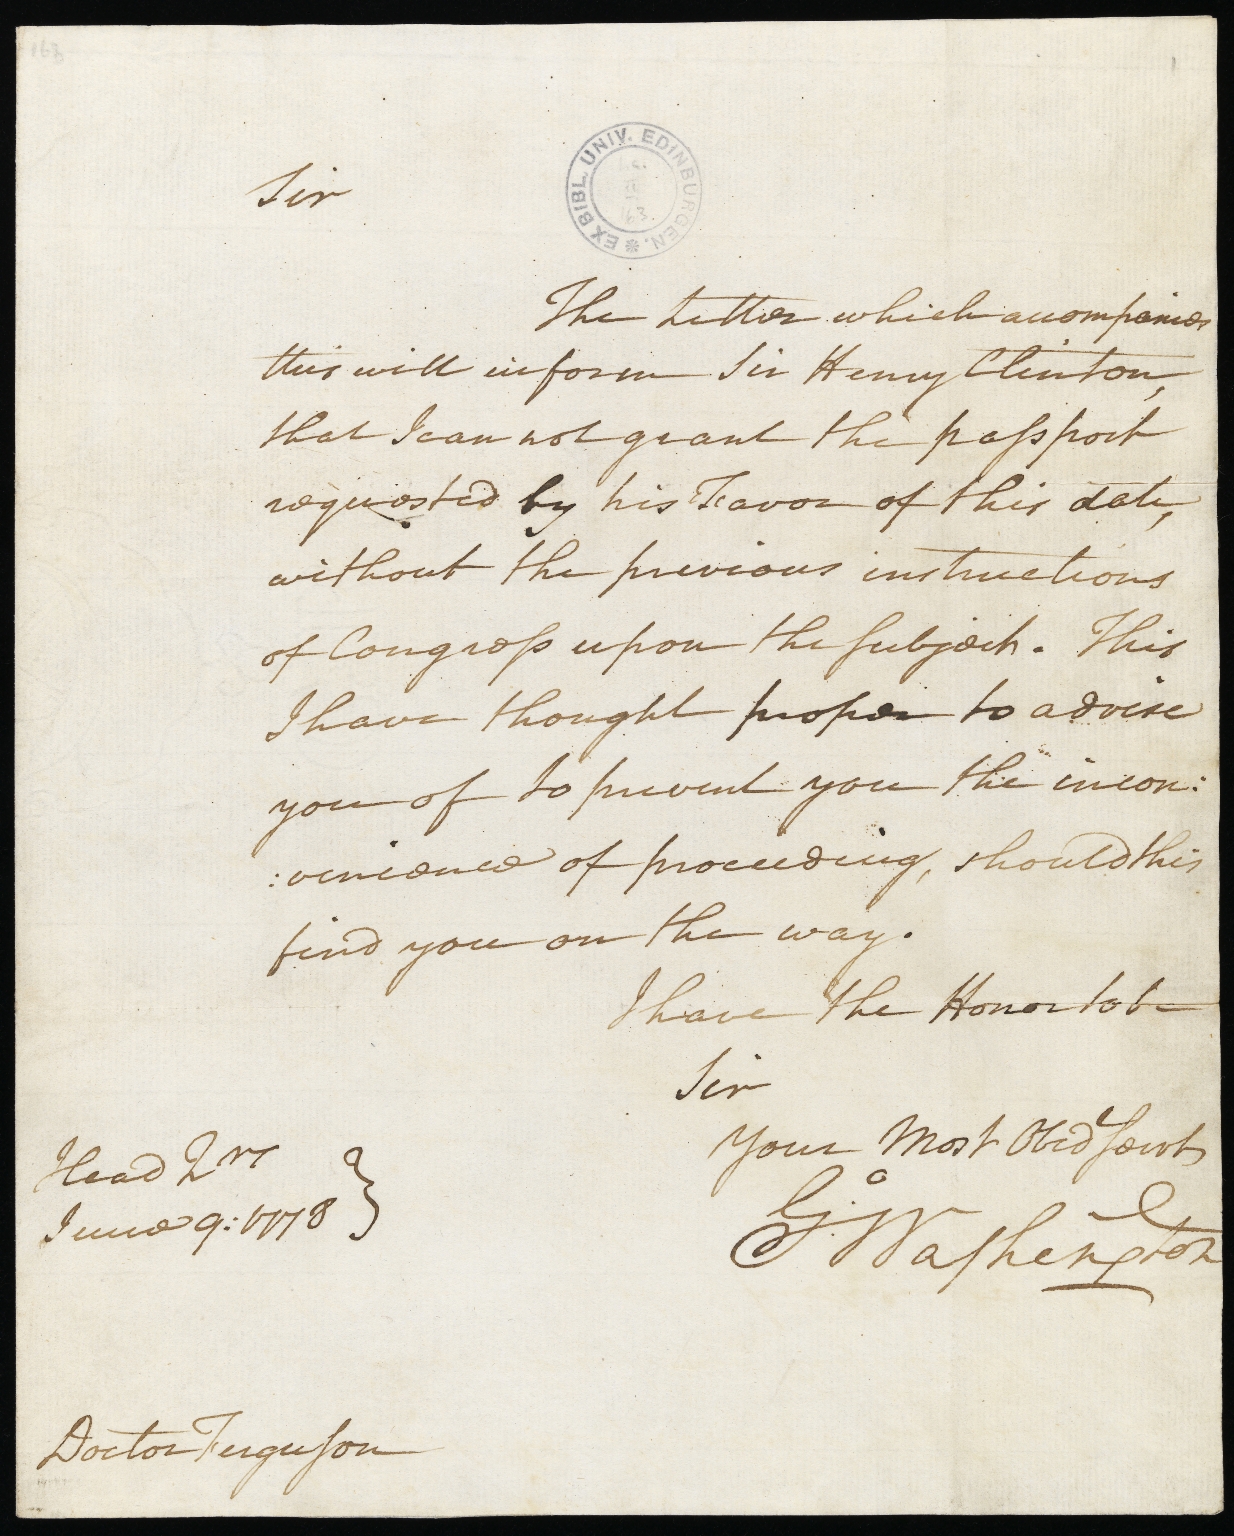 163
1
EX BIBL. UNIV. EDINBURGEN.
163.
Sir
The Letter which accompanies
this will inform Sir Henry Clinton,
that I can not grant the passport
requested by his Favor of this date,
without the previous instructions
of Congress upon the subject. This
I have thought proper to advise
you of to prevent you the incon:
:venience of proceeding, should this
find you on the way.
I have the Honor to be
Sir
Your Most Obedt Servt
Go: Washington
Head Qrs
June 9: 1778
Doctor Ferguson